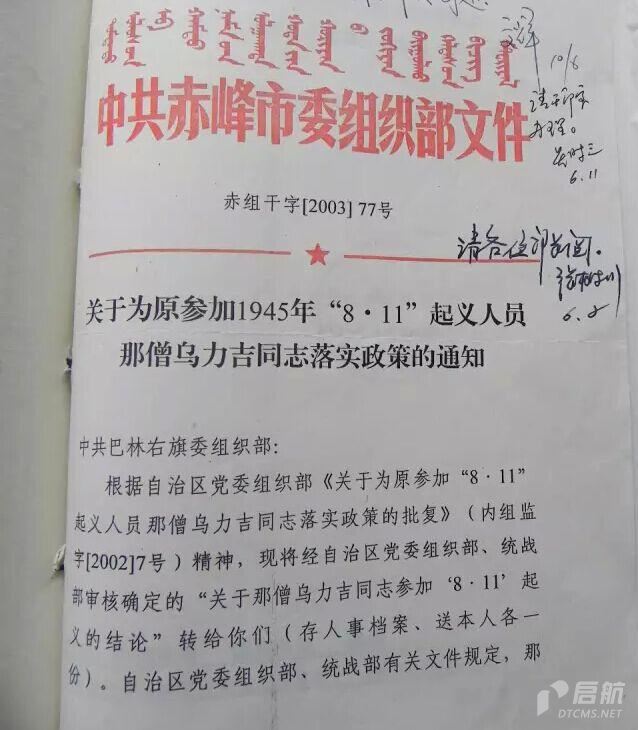 10/6
请干部室
办理。
6.11
中共赤峰市委组织部文件
赤组干字[2003] 77号
请各位部长阅。
6.8
关于为原参加1945年“8·11”起义人员
那僧乌力吉同志落实政策的通知
中共巴林右旗委组织部：
根据自治区党委组织部《关于为原参加“8·11”
起义人员那僧乌力吉同志落实政策的批复》（内组监
字[2002]7号）精神，现将经自治区党委组织部、统战
部审核确定的“关于那僧乌力吉同志参加‘8·11’起
义的结论”转给你们（存人事档案、送本人各一
份）。自治区党委组织部、统战部有关文件规定，那
启航
DTCMS.NET